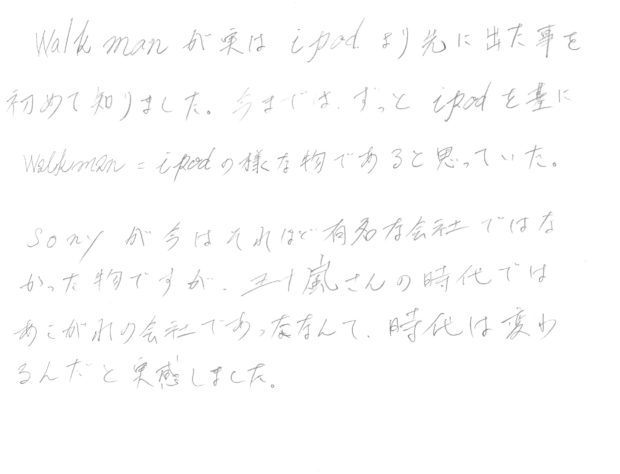 Walkman が実は ipod より先に出た事を
初めて知りました。今までは、ずっと ipodを基に
Walkman = ipodの様な物であると思っていた。
sony が今はそれほど有名な会社ではな
かった物ですが、五十嵐さんの時代では
あこがれの会社であったなんて、時代は変わ
るんだと実感しました。